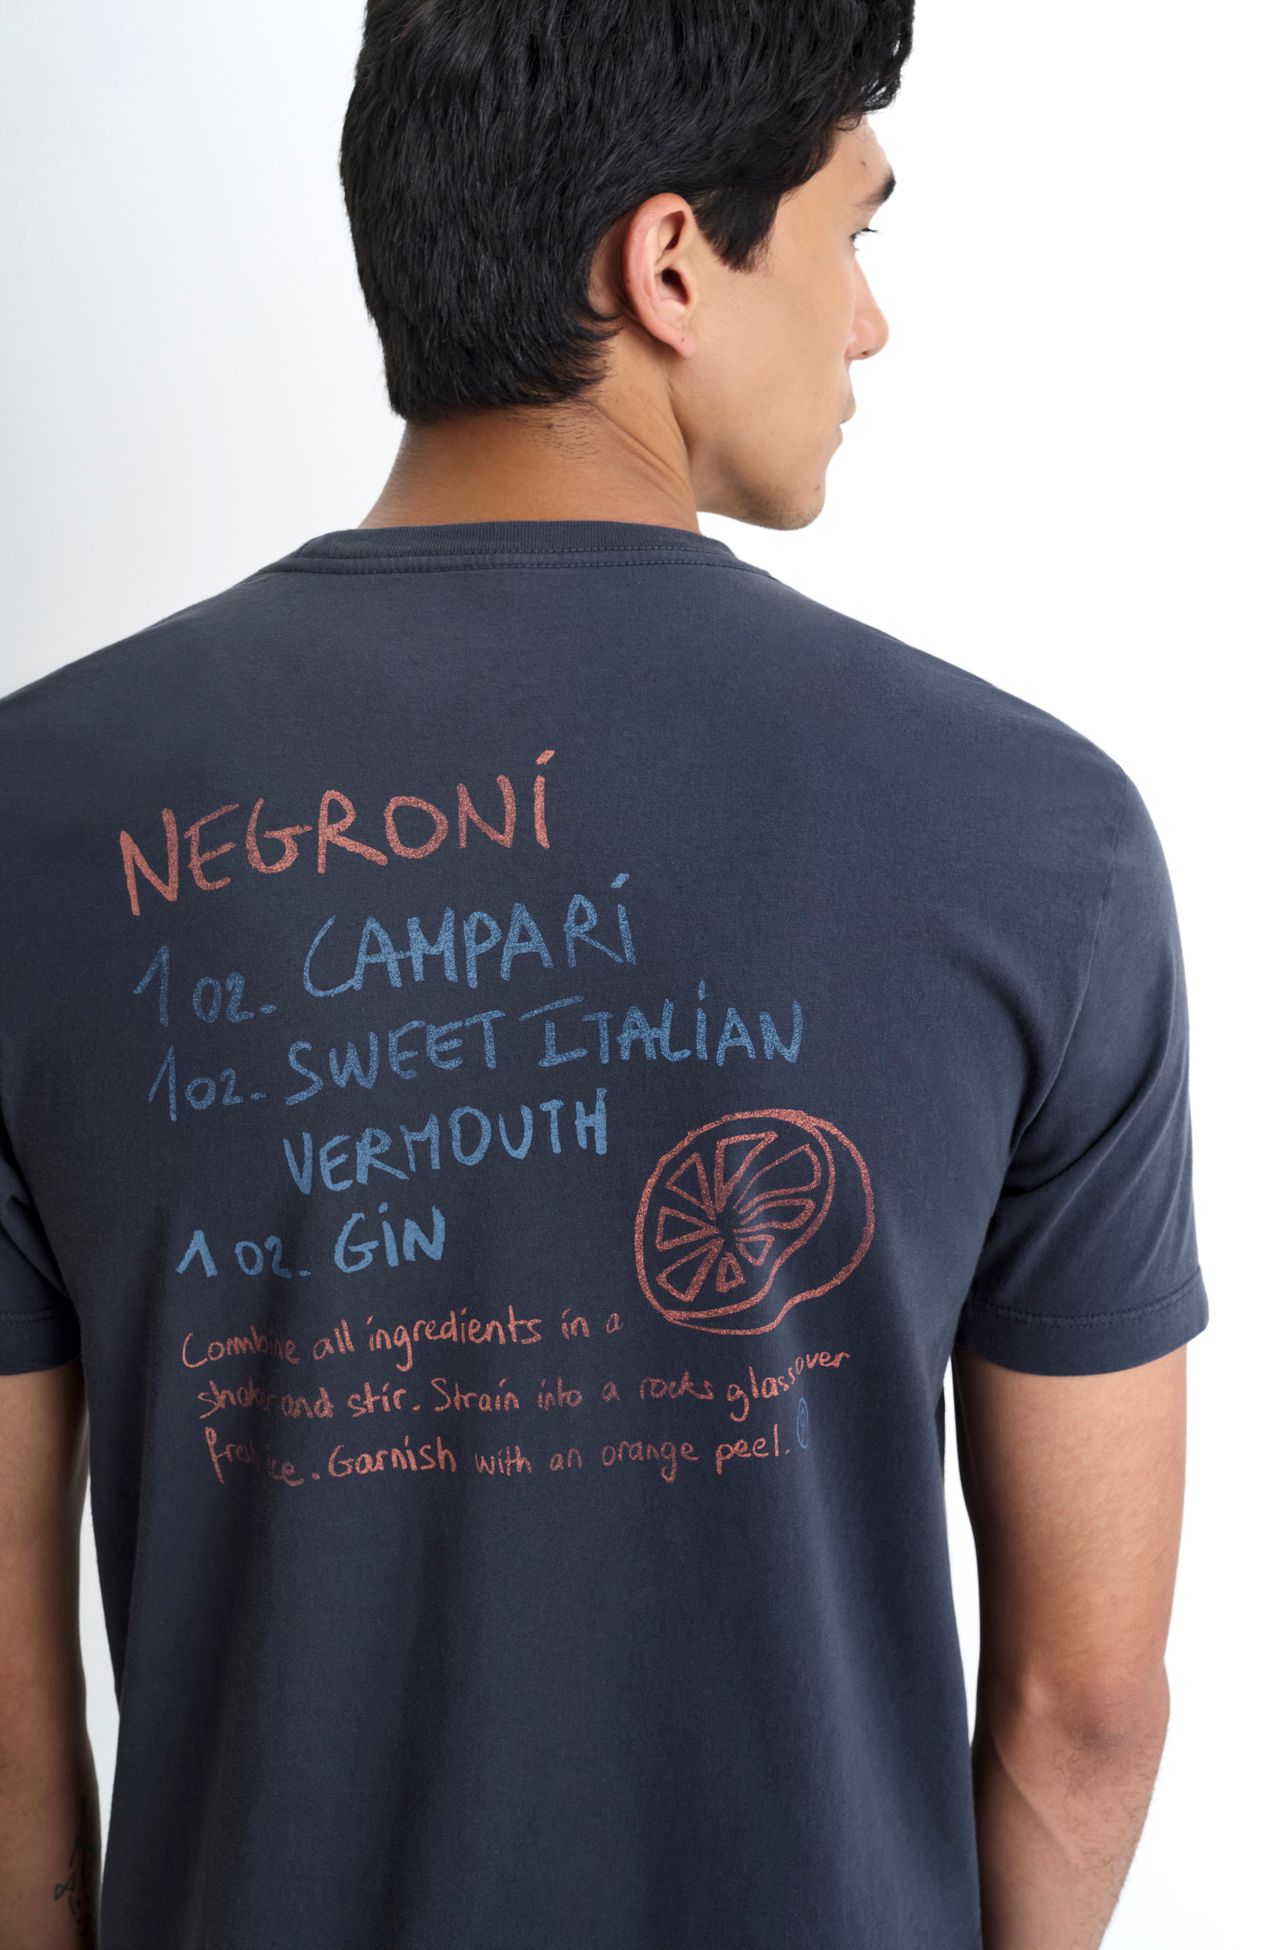 NEGRONI
1 oz. CAMPARI
1 oz. SWEET ITALIAN
VERMOUTH
1 oz. GIN
Combine all ingredients in a
shaker and stir. Strain into a rocks glass over
fresh ice. Garnish with an orange peel.